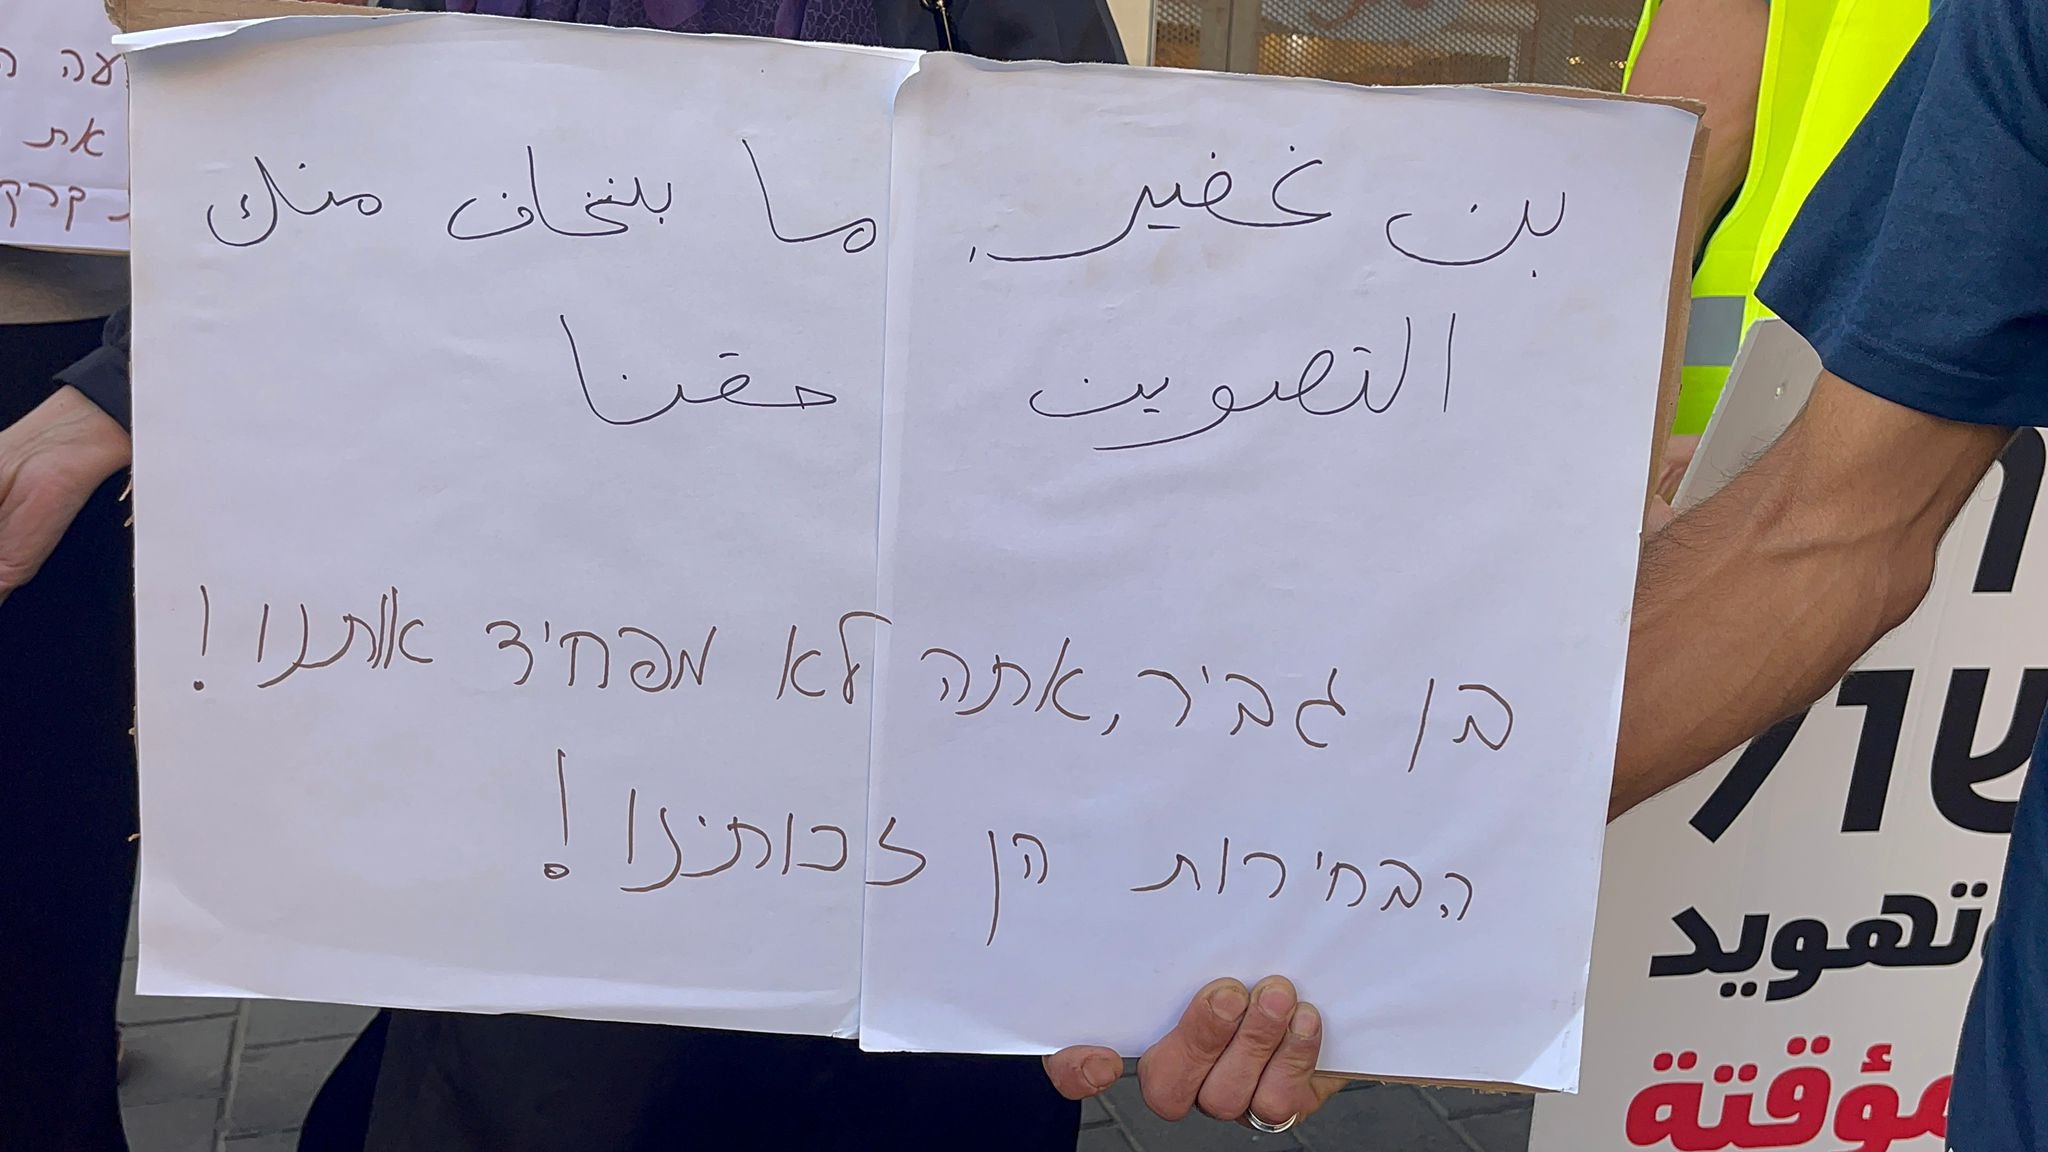 بن غفير, ما بنخاف منك
التصويت حقنا
בן גביר, אתה לא מפחיד אותנו!
הבחירות הן זכותינו!
את
تهويد
مؤقتة